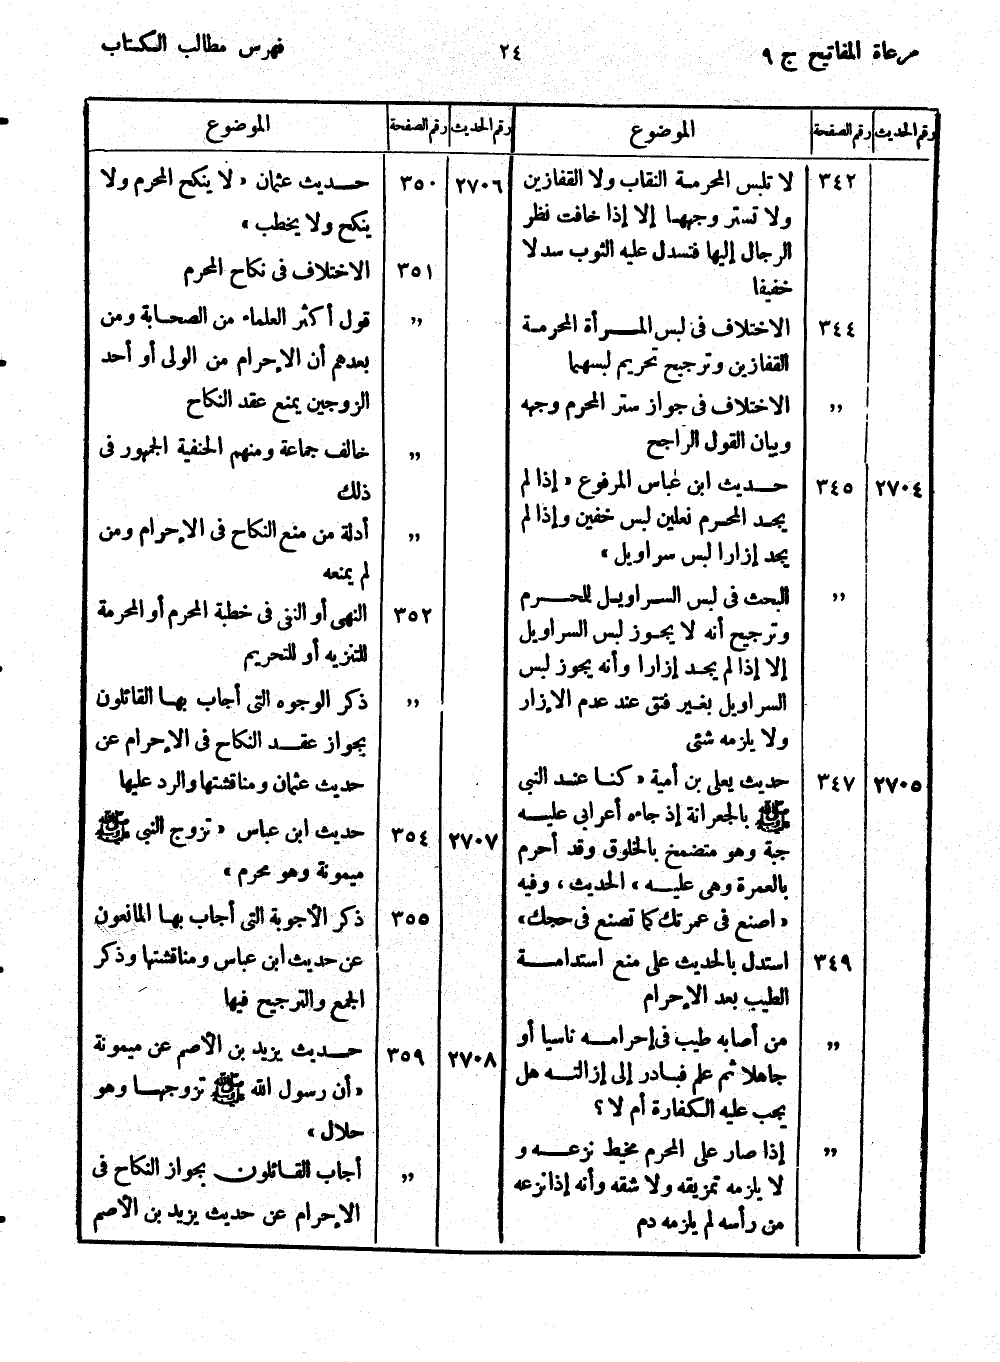 مرعاة المفاتيح ج ٩
٢٤
فهرس مطالب الكتاب
رقم الحديث رقم الصفحة الموضوع
٣٤٢ لا تلبس المحرمة النقاب ولا القفازين
ولا تستر وجهها إلا إذا خافت نظر
الرجال إليها فتسدل عليه الثوب سدلا
خفيفا
٣٤٤ الاختلاف فى لبس المرأة المحرمة
القفازين وترجيح تحريم لبسهما
,, الاختلاف فى جواز ستر المحرم وجهه
وبيان القول الراجح
٢٧٠٤ ٣٤٥ حديث ابن عباس المرفوع « إذا لم
يجد المحرم نعلين لبس خفين وإذا لم
يجد إزارا لبس سراويل »
,, البحث فى لبس السراويل للمحرم
وترجيح أنه لا يجوز لبس السراويل
إلا إذا لم يجد إزارا وأنه يجوز لبس
السراويل بغير فتق عند عدم الإزار
ولا يلزمه شئى
٢٧٠٥ ٣٤٧ حديث يعلى بن أمية « كنا عند النبى
ﷺ بالجعرانة إذ جاءه أعرابى عليه
جبة وهو متضمخ بالخلوق وقد أحرم
بالعمرة وهى عليه » الحديث ، وفيه
« اصنع فى عمرتك كما تصنع فى حجك »
٣٤٩ استدل بالحديث على منع استدامة
الطيب بعد الإحرام
,, من أصابه طيب فى إحرامه ناسيا أو
جاهلا ثم علم فبادر إلى إزالته هل
يجب عليه الكفارة أم لا ؟
,, إذا صار على المحرم مخيط نزعه و
لا يلزمه تمزيقه ولا شقه وأنه إذا نزعه
من رأسه لم يلزمه دم
رقم الحديث رقم الصفحة الموضوع
٢٧٠٦ ٣٥٠ حديث عثمان « لا ينكح المحرم ولا
ينكح ولا يخطب »
٣٥١ الاختلاف فى نكاح المحرم
,, قول أكثر العلماء من الصحابة ومن
بعدهم أن الإحرام من الولى أو أحد
الزوجين يمنع عقد النكاح
,, خالف جماعة ومنهم الحنفية الجمهور فى
ذلك
,, أدلة من منع النكاح فى الإحرام ومن
لم يمنعه
٣٥٢ النهى أو النفى فى خطبة المحرم أو المحرمة
للتنزيه أو للتحريم
,, ذكر الوجوه التى أجاب بها القائلون
بجواز عقد النكاح فى الإحرام عن
حديث عثمان ومناقشتها والرد عليها
٢٧٠٧ ٣٥٤ حديث ابن عباس « تزوج النبى ﷺ
ميمونة وهو محرم »
٣٥٥ ذكر الأجوبة التى أجاب بها المانعون
عن حديث ابن عباس ومناقشتها وذكر
الجمع والترجيح فيها
٢٧٠٨ ٣٥٩ حديث يزيد بن الأصم عن ميمونة
« أن رسول الله ﷺ تزوجها وهو
حلال »
,, أجاب القائلون بجواز النكاح فى
الإحرام عن حديث يزيد بن الأصم